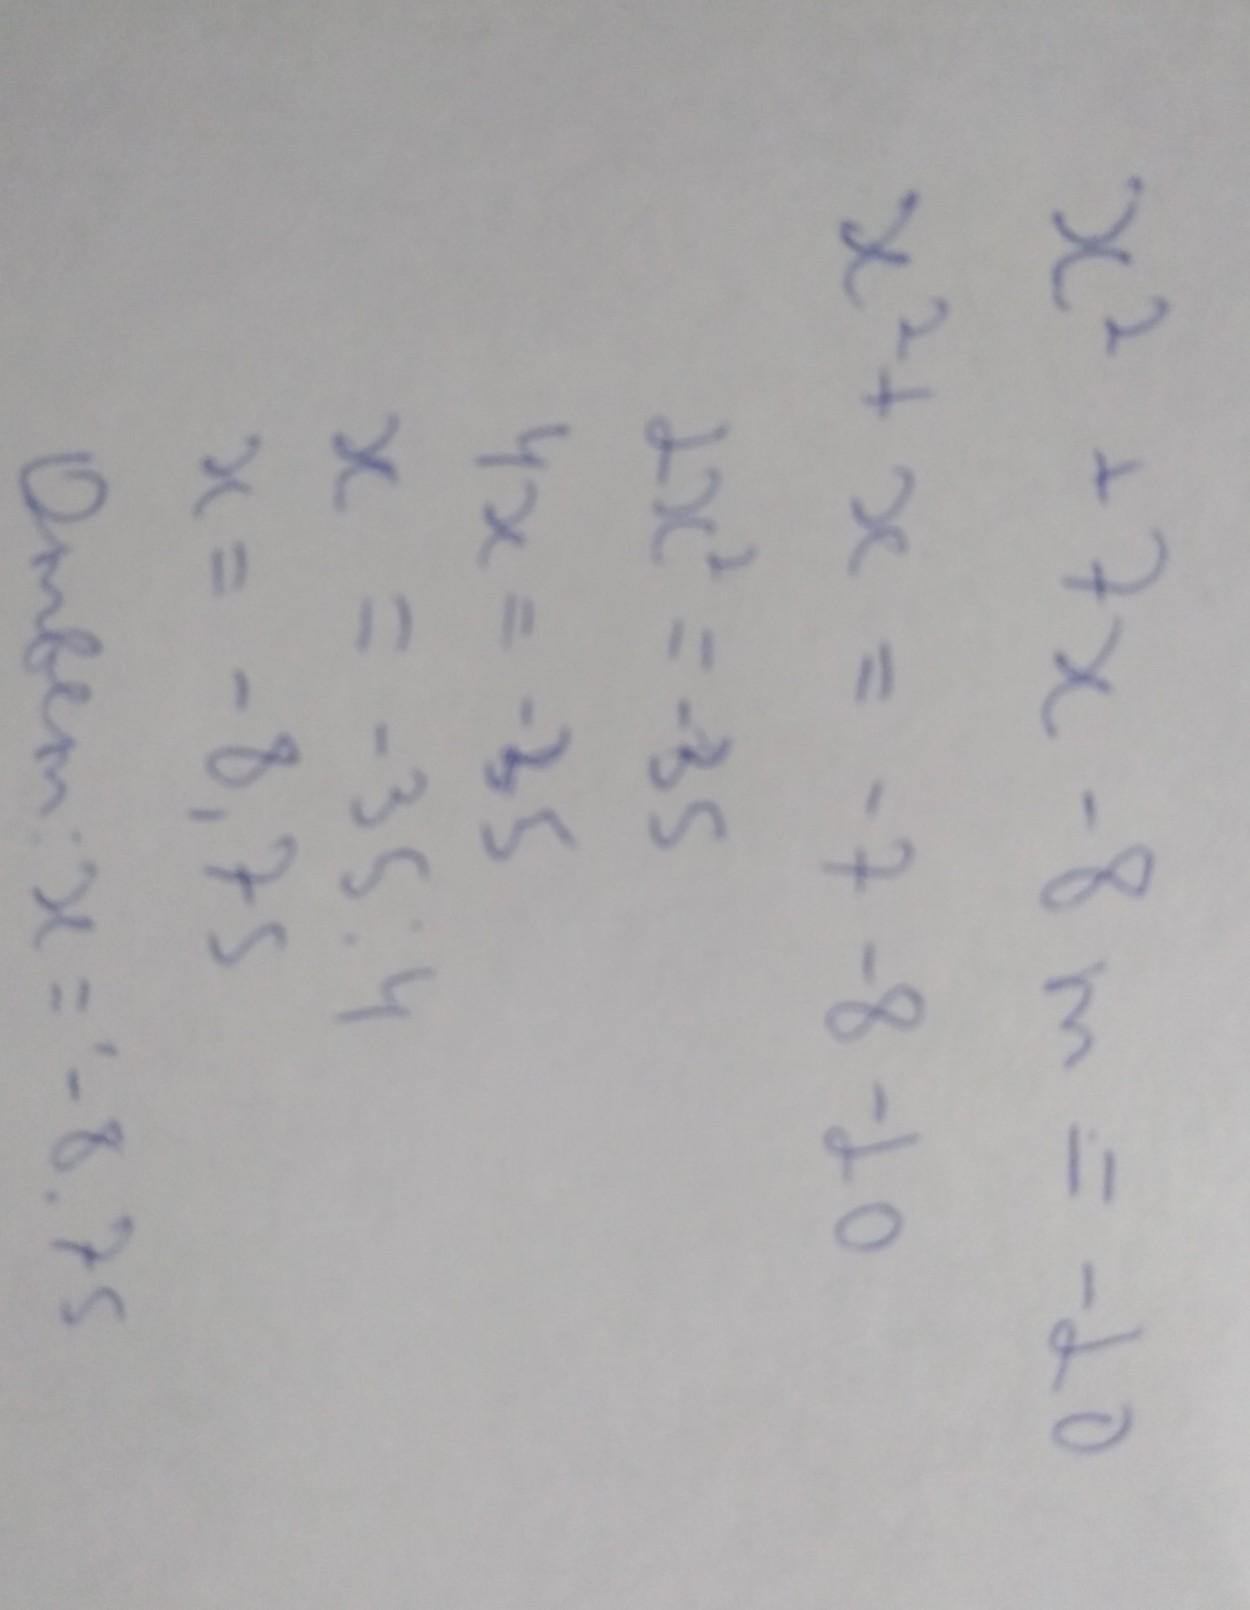 x² + 7x - 83 = -20
x² + x = -7 - 8 - 20
2x² = -35
4x = -35
x = -35 : 4
x = -8,75
Ответ: x = -8,75